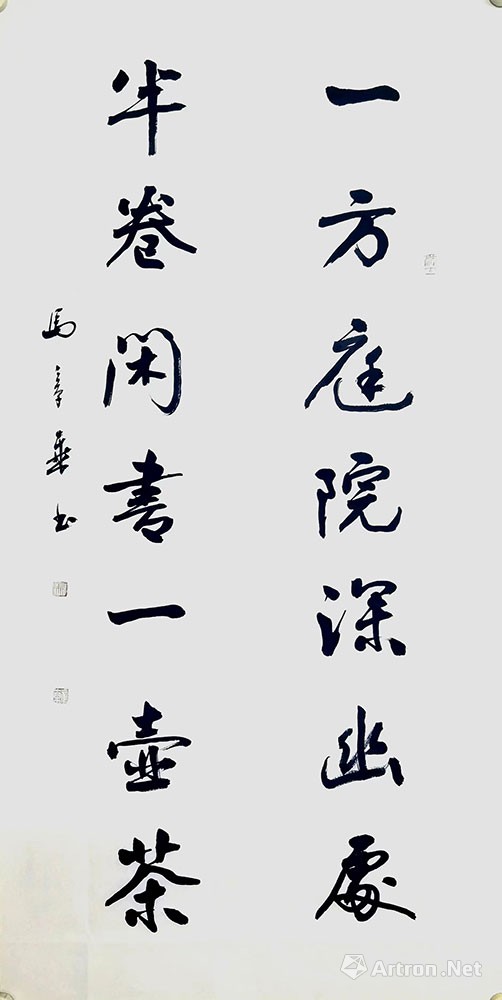 一方庭院深幽處
半卷閑書一壺茶
馬章乘书
Artron.Net